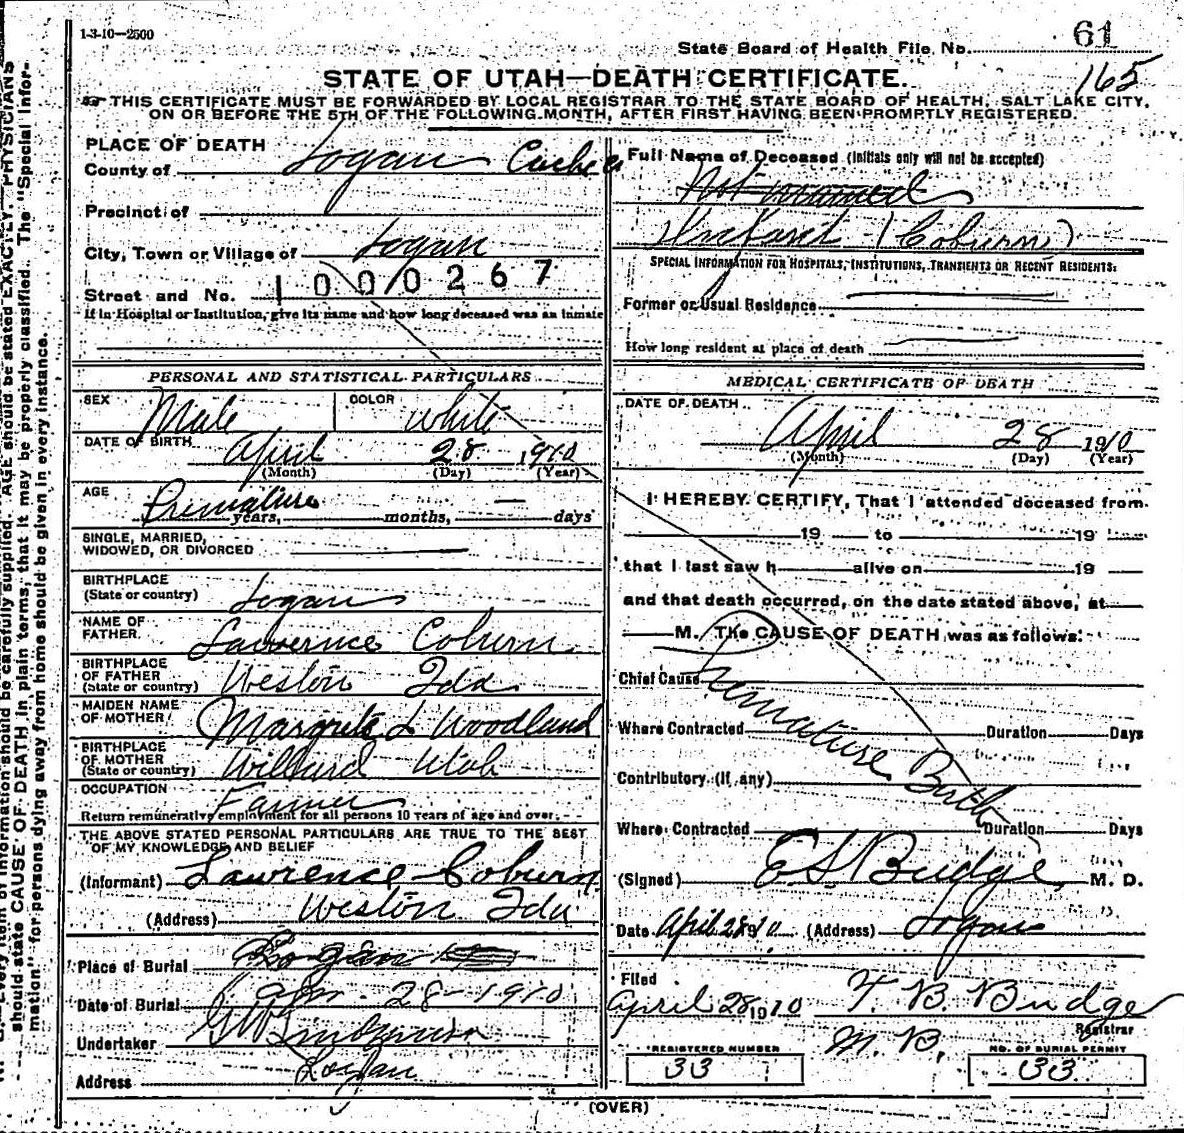 1-3-10—2500
State Board of Health File No. 61
165
STATE OF UTAH—DEATH CERTIFICATE.
THIS CERTIFICATE MUST BE FORWARDED BY LOCAL REGISTRAR TO THE STATE BOARD OF HEALTH, SALT LAKE CITY,
ON OR BEFORE THE 5TH OF THE FOLLOWING MONTH, AFTER FIRST HAVING BEEN PROMPTLY REGISTERED.
PLACE OF DEATH
County of Logan Cache
Precinct of
City, Town or Village of Logan
Street and No. 1000267
If in Hospital or Institution, give its name and how long deceased was an inmate
PERSONAL AND STATISTICAL PARTICULARS
SEX Male COLOR White
DATE OF BIRTH April 28 1910
(Month) (Day) (Year)
AGE Premature —
years, months, days
SINGLE, MARRIED,
WIDOWED, OR DIVORCED
BIRTHPLACE
(State or country) Logan
NAME OF
FATHER Lawrence Coburn
BIRTHPLACE
OF FATHER
(State or country) Weston Ida
MAIDEN NAME
OF MOTHER Margrete L Woodland
BIRTHPLACE
OF MOTHER
(State or country) Willard Utah
OCCUPATION Farmer
Return remunerative employment for all persons 10 years of age and over.
THE ABOVE STATED PERSONAL PARTICULARS ARE TRUE TO THE BEST
OF MY KNOWLEDGE AND BELIEF
(Informant) Lawrence Coburn
(Address) Weston Ida
Place of Burial Logan
Date of Burial Apr. 28-1910
Undertaker
Address Logan
Full Name of Deceased (Initials only will not be accepted)
Not named
(Coburn)
SPECIAL INFORMATION FOR HOSPITALS, INSTITUTIONS, TRANSIENTS OR RECENT RESIDENTS:
Former or Usual Residence
How long resident at place of death
MEDICAL CERTIFICATE OF DEATH
DATE OF DEATH
April 28 1910
(Month) (Day) (Year)
I HEREBY CERTIFY, That I attended deceased from
19 to 19
that I last saw h alive on 19
and that death occurred, on the date stated above, at
M. The CAUSE OF DEATH was as follows:
Chief Cause Premature Birth
Where Contracted Duration Days
Contributory (If any)
Where Contracted Duration Days
(Signed) E S Budge, M. D.
Date April 28 1910 (Address) Logan
Filed
April 28 1910 F. B. Budge
Registrar
M. B.
REGISTERED NUMBER
33
NO. OF BURIAL PERMIT
33
(OVER)
Every item of information should be carefully supplied. AGE should be stated EXACTLY. PHYSICIANS
should state CAUSE OF DEATH in plain terms, that it may be properly classified. The "Special Infor-
mation" for persons dying away from home should be given in every instance.